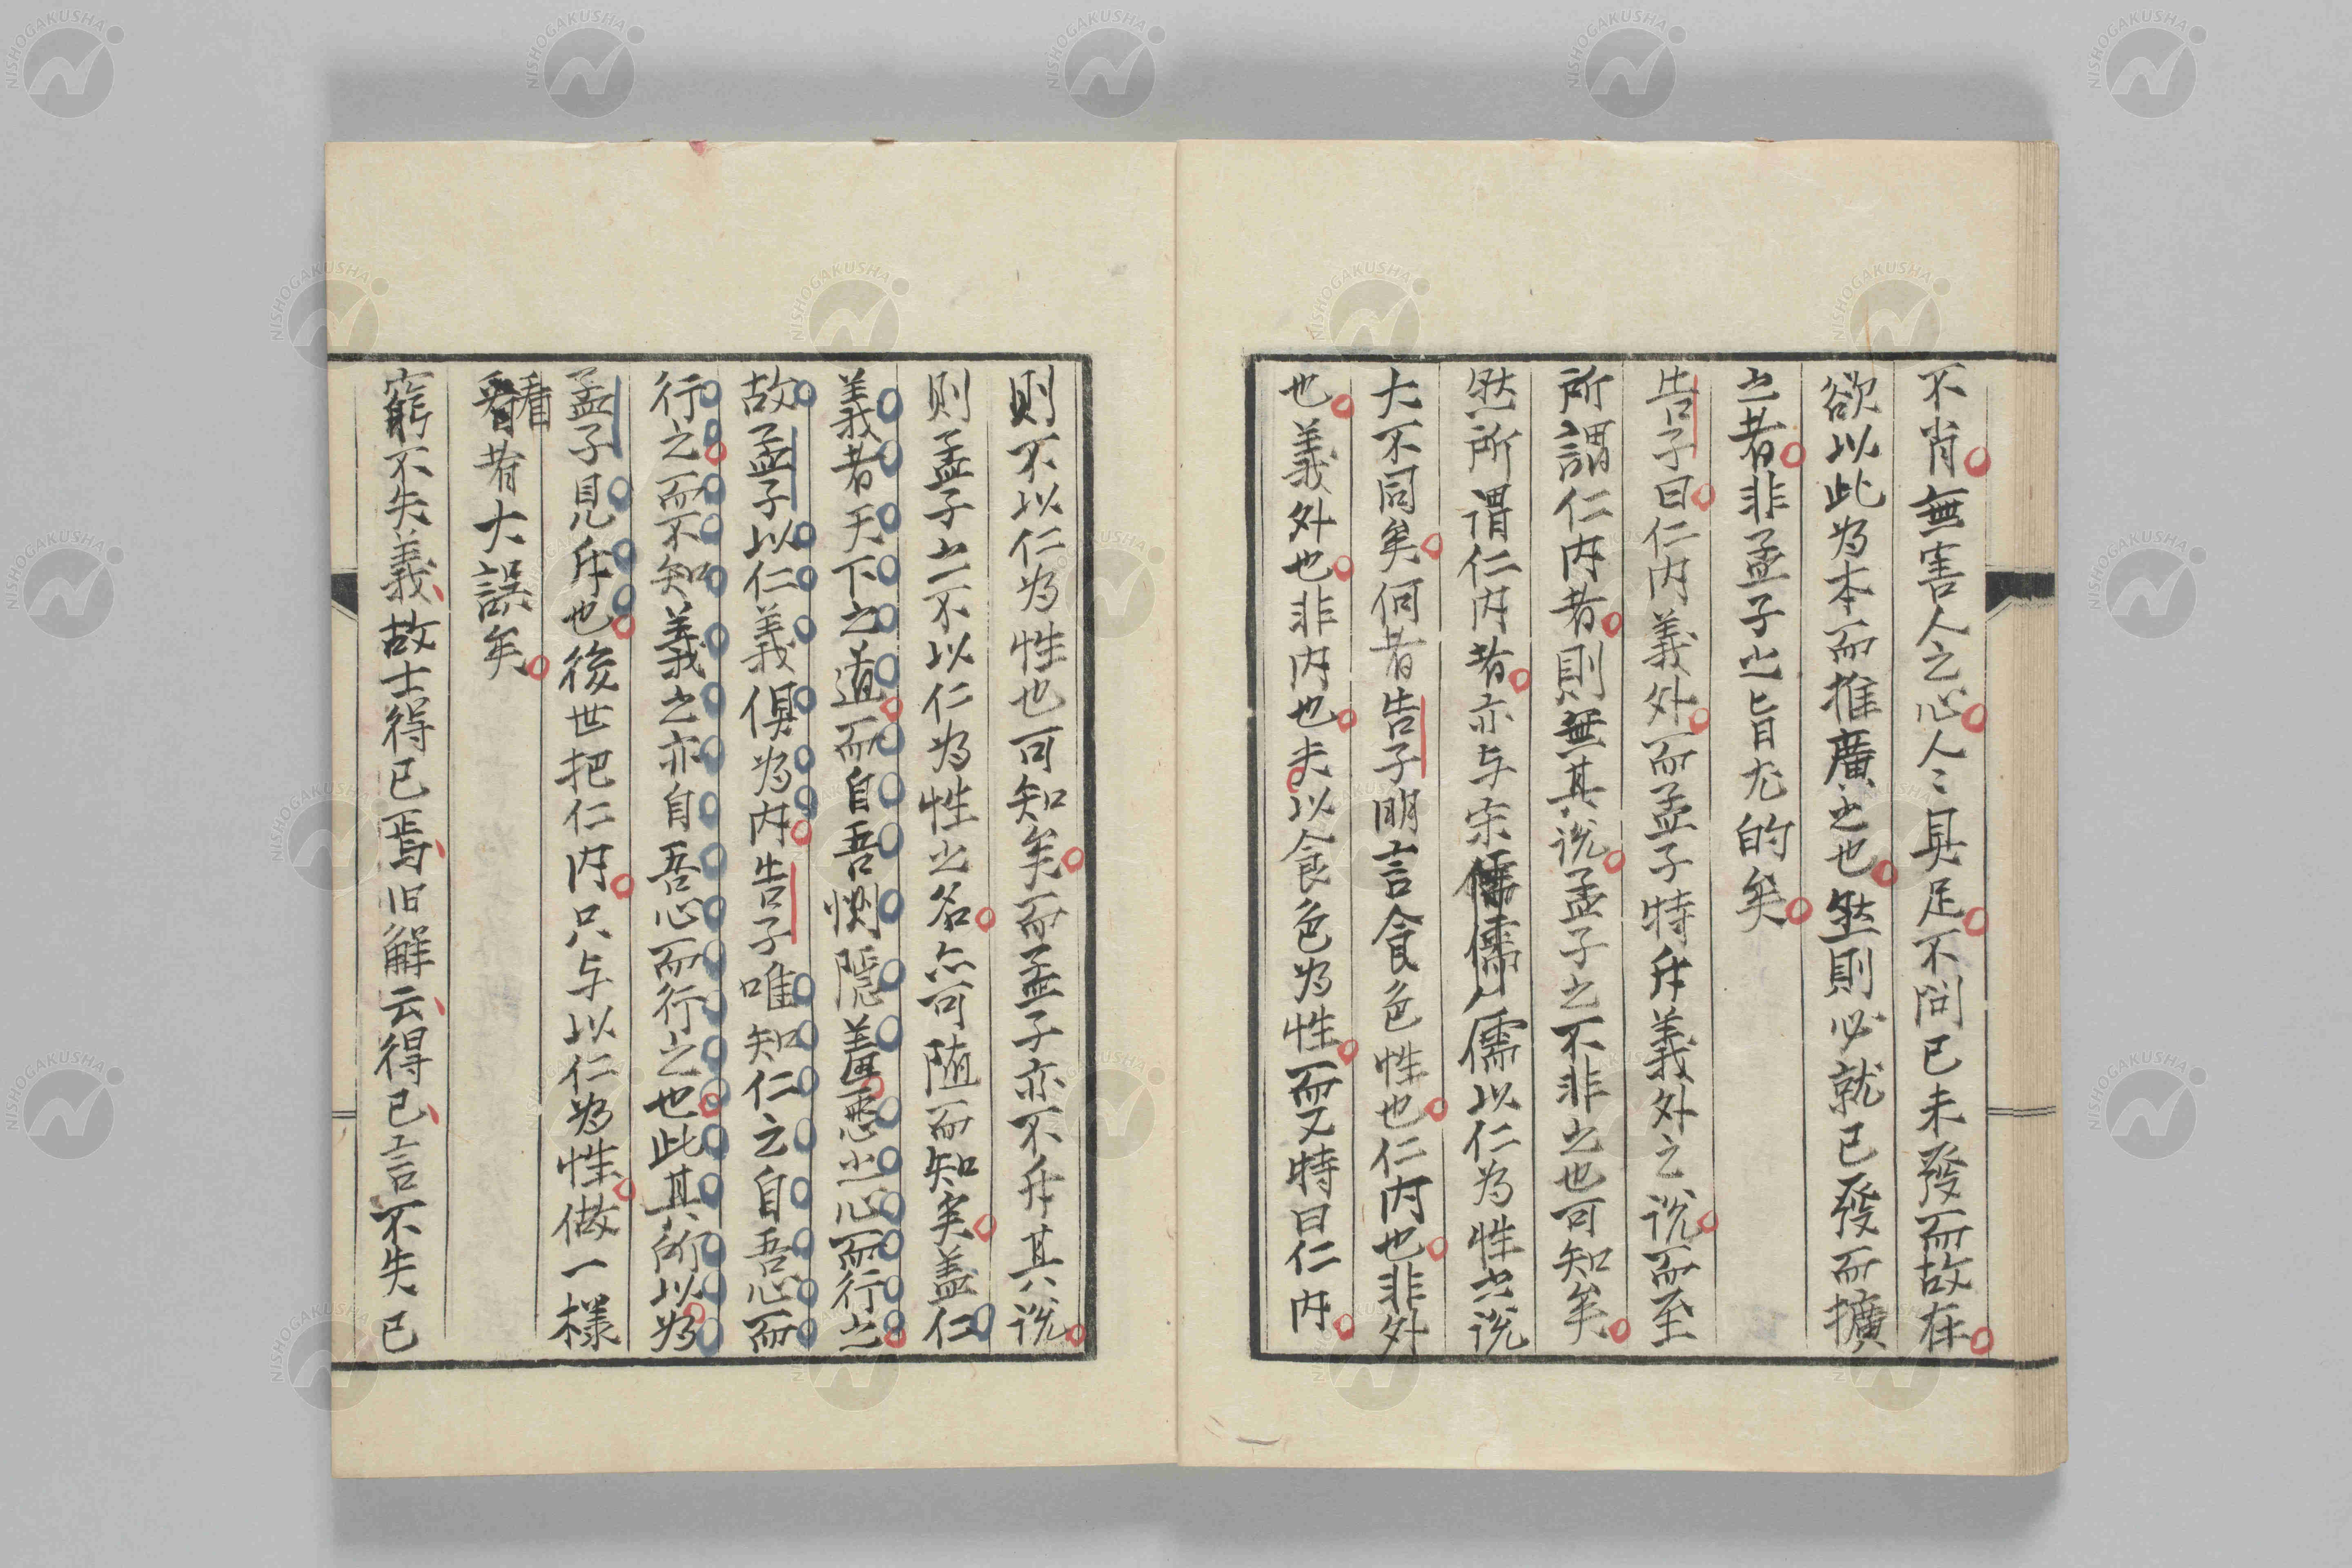 不肖無害人之心人〻具足不問已未發而故在
欲以此為本而推廣之也然則必就已發而擴
之者非孟子之旨尤的矣
告子曰仁内義外而孟子特斥義外之说而至
所謂仁内者則無其说孟子之不非之也可知矣
然所谓仁内者亦与宋儒以仁為性之说
大不同矣何者告子明言食色性也仁内也非外
也義外也非内也夫以食色为性而又特曰仁内
則不以仁为性也可知矣而孟子亦不斥其说
則孟子之不以仁为性之名亦可随而知矣盖仁
義者天下之道而自吾惻隠羞悪之心而行之
故孟子以仁義俱为内告子唯知仁之自吾心而
行之而不知義之亦自吾心而行之也此其所以为
孟子見斥也後世把仁内只与以仁为性做一樣
看者大誤矣
窮不失義故士得已焉旧解云得已言不失已
NISHOGAKUSHA